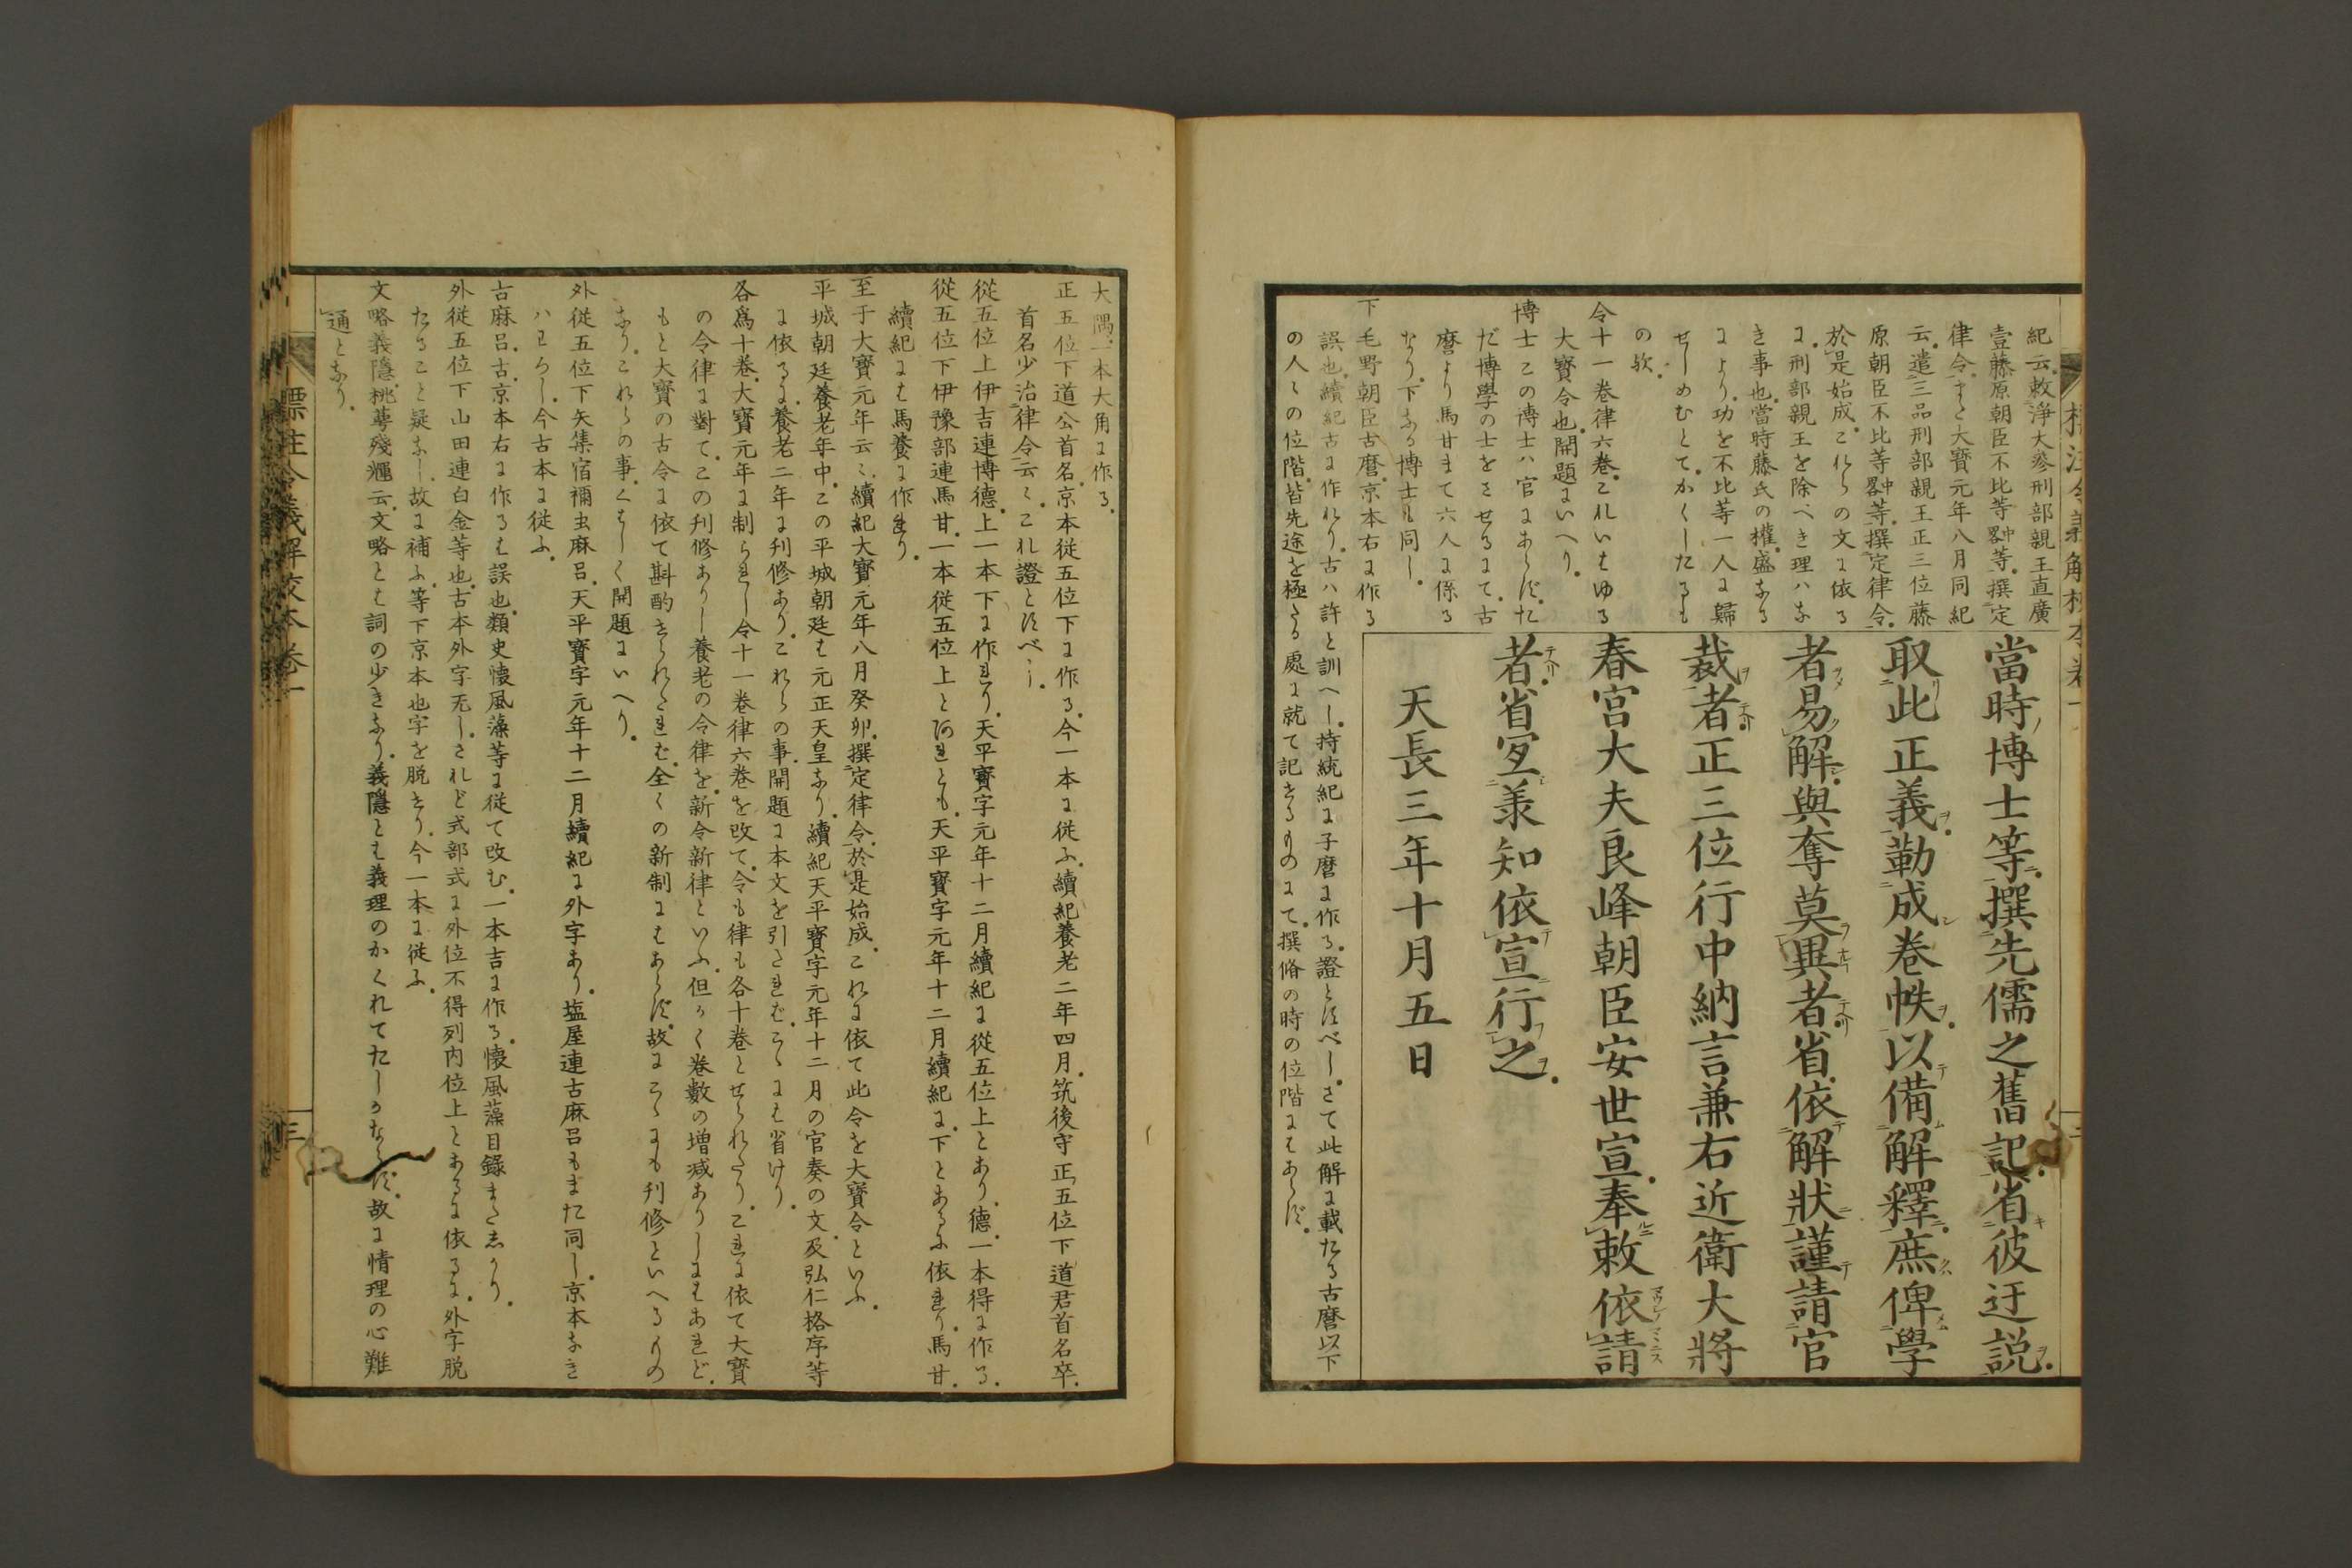 標注令義解校本卷一
紀云敕淨大參刑部親王直廣
壹藤原朝臣不比等畧中等撰定
律令また大寶元年八月同紀
云遣三品刑部親王正三位藤
原朝臣不比等畧中等撰定律令
於是始成これらの文に依る
に刑部親王を除べき理ハな
き事也當時藤氏の權盛なる
により功を不比等一人に歸
せしめむとてかくしたるも
の歟
令十一巻律六巻これいはゆる
大寶令也開題にいへり
博士この博士ハ官にあらずた
だ博學の士をさせるにて古
麿より馬甘まて六人に係る
なり下なる博士も同し
下毛野朝臣古麿京本右に作る
誤也續紀古に作れり古ハ許と訓へし持統紀に子麿に作る證とすべしさて此解に載たる古麿以下
の人々の位階皆先途を極たる處に就て記せるものにて撰脩の時の位階にはあらず
當時博士等撰先儒之舊記省彼迂説
取此正義勒成巻帙以備解釋庶俾學
者易解與奪莫異者省依解狀謹請官
裁者正三位行中納言兼右近衛大將
春宮大夫良峰朝臣安世宣奉敕依請
者省冝羕知依宣行之
天長三年十月五日
大隅一本大角に作る
正五位下道公首名京本従五位下に作る今一本に従ふ續紀養老二年四月筑後守正五位下道君首名卒
首名少治律令云々これ證とすべし
従五位上伊吉連博德上一本下に作れり天平寶字元年十二月續紀に従五位上とあり德一本得に作る
従五位下伊豫部連馬甘一本従五位上とあれとも天平寶字元年十二月續紀に下とあるに依れり馬甘
續紀には馬養に作れり
至于大寶元年云々續紀大寶元年八月癸卯撰定律令於是始成これに依て此令を大寶令といふ
平城朝廷養老年中この平城朝廷は元正天皇なり續紀天平寶字元年十二月の官奏の文及弘仁格序等
に依るに養老二年に刋修ありこれらの事開題に本文を引たればこゝには省けり
各爲十巻大寶元年に制られし令十一巻律六巻を改て令も律も各十巻とせられたりこれに依て大寶
の令律に對てこの刋修ありし養老の令律を新令新律といふ但かく巻數の增減ありしにはあれど
もと大寶の古令に依て斟酌せられたれば全くの新制にはあらず故にこゝにも刋修といへるもの
なりこれらの事くはしく開題にいへり
外従五位下矢集宿禰虫麻呂天平寶字元年十二月續紀に外字あり塩屋連古麻呂もまた同し京本なき
ハわろし今古本に従ふ
古麻呂古京本右に作るは誤也類史懐風藻等に従て改む一本吉に作る懐風藻目錄またしかり
外従五位下山田連白金等也古本外字无しされど式部式に外位不得列内位上とあるに依るに外字脱
たること疑なし故に補ふ等下京本也字を脱せり今一本に従ふ
文略義隱桃蕚殘𩔖云文略とは詞の少きなり義隱とは義理のかくれてたしかならず故に情理の心難
通となり
標註令義解校本 巻一
三